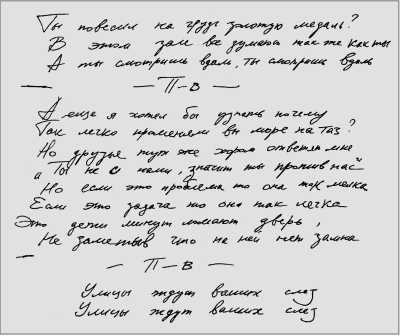 Ты повесил на грудь золотую медаль?
В этом зале все думают так же как ты
А ты смотришь вдаль, ты смотришь вдаль
— П-в —
А еще я хотел бы узнать почему
Так легко променяли вы море на таз?
Но друзья тут же хором ответят мне
"Ты не с нами, значит ты против нас"
Но если это проблема то она так мелка
Если это задача то она так легка
Эти дети минут ломают дверь,
Не заметив что на ней нет замка
— П-в —
Улицы ждут ваших слез
Улицы ждут ваших слез